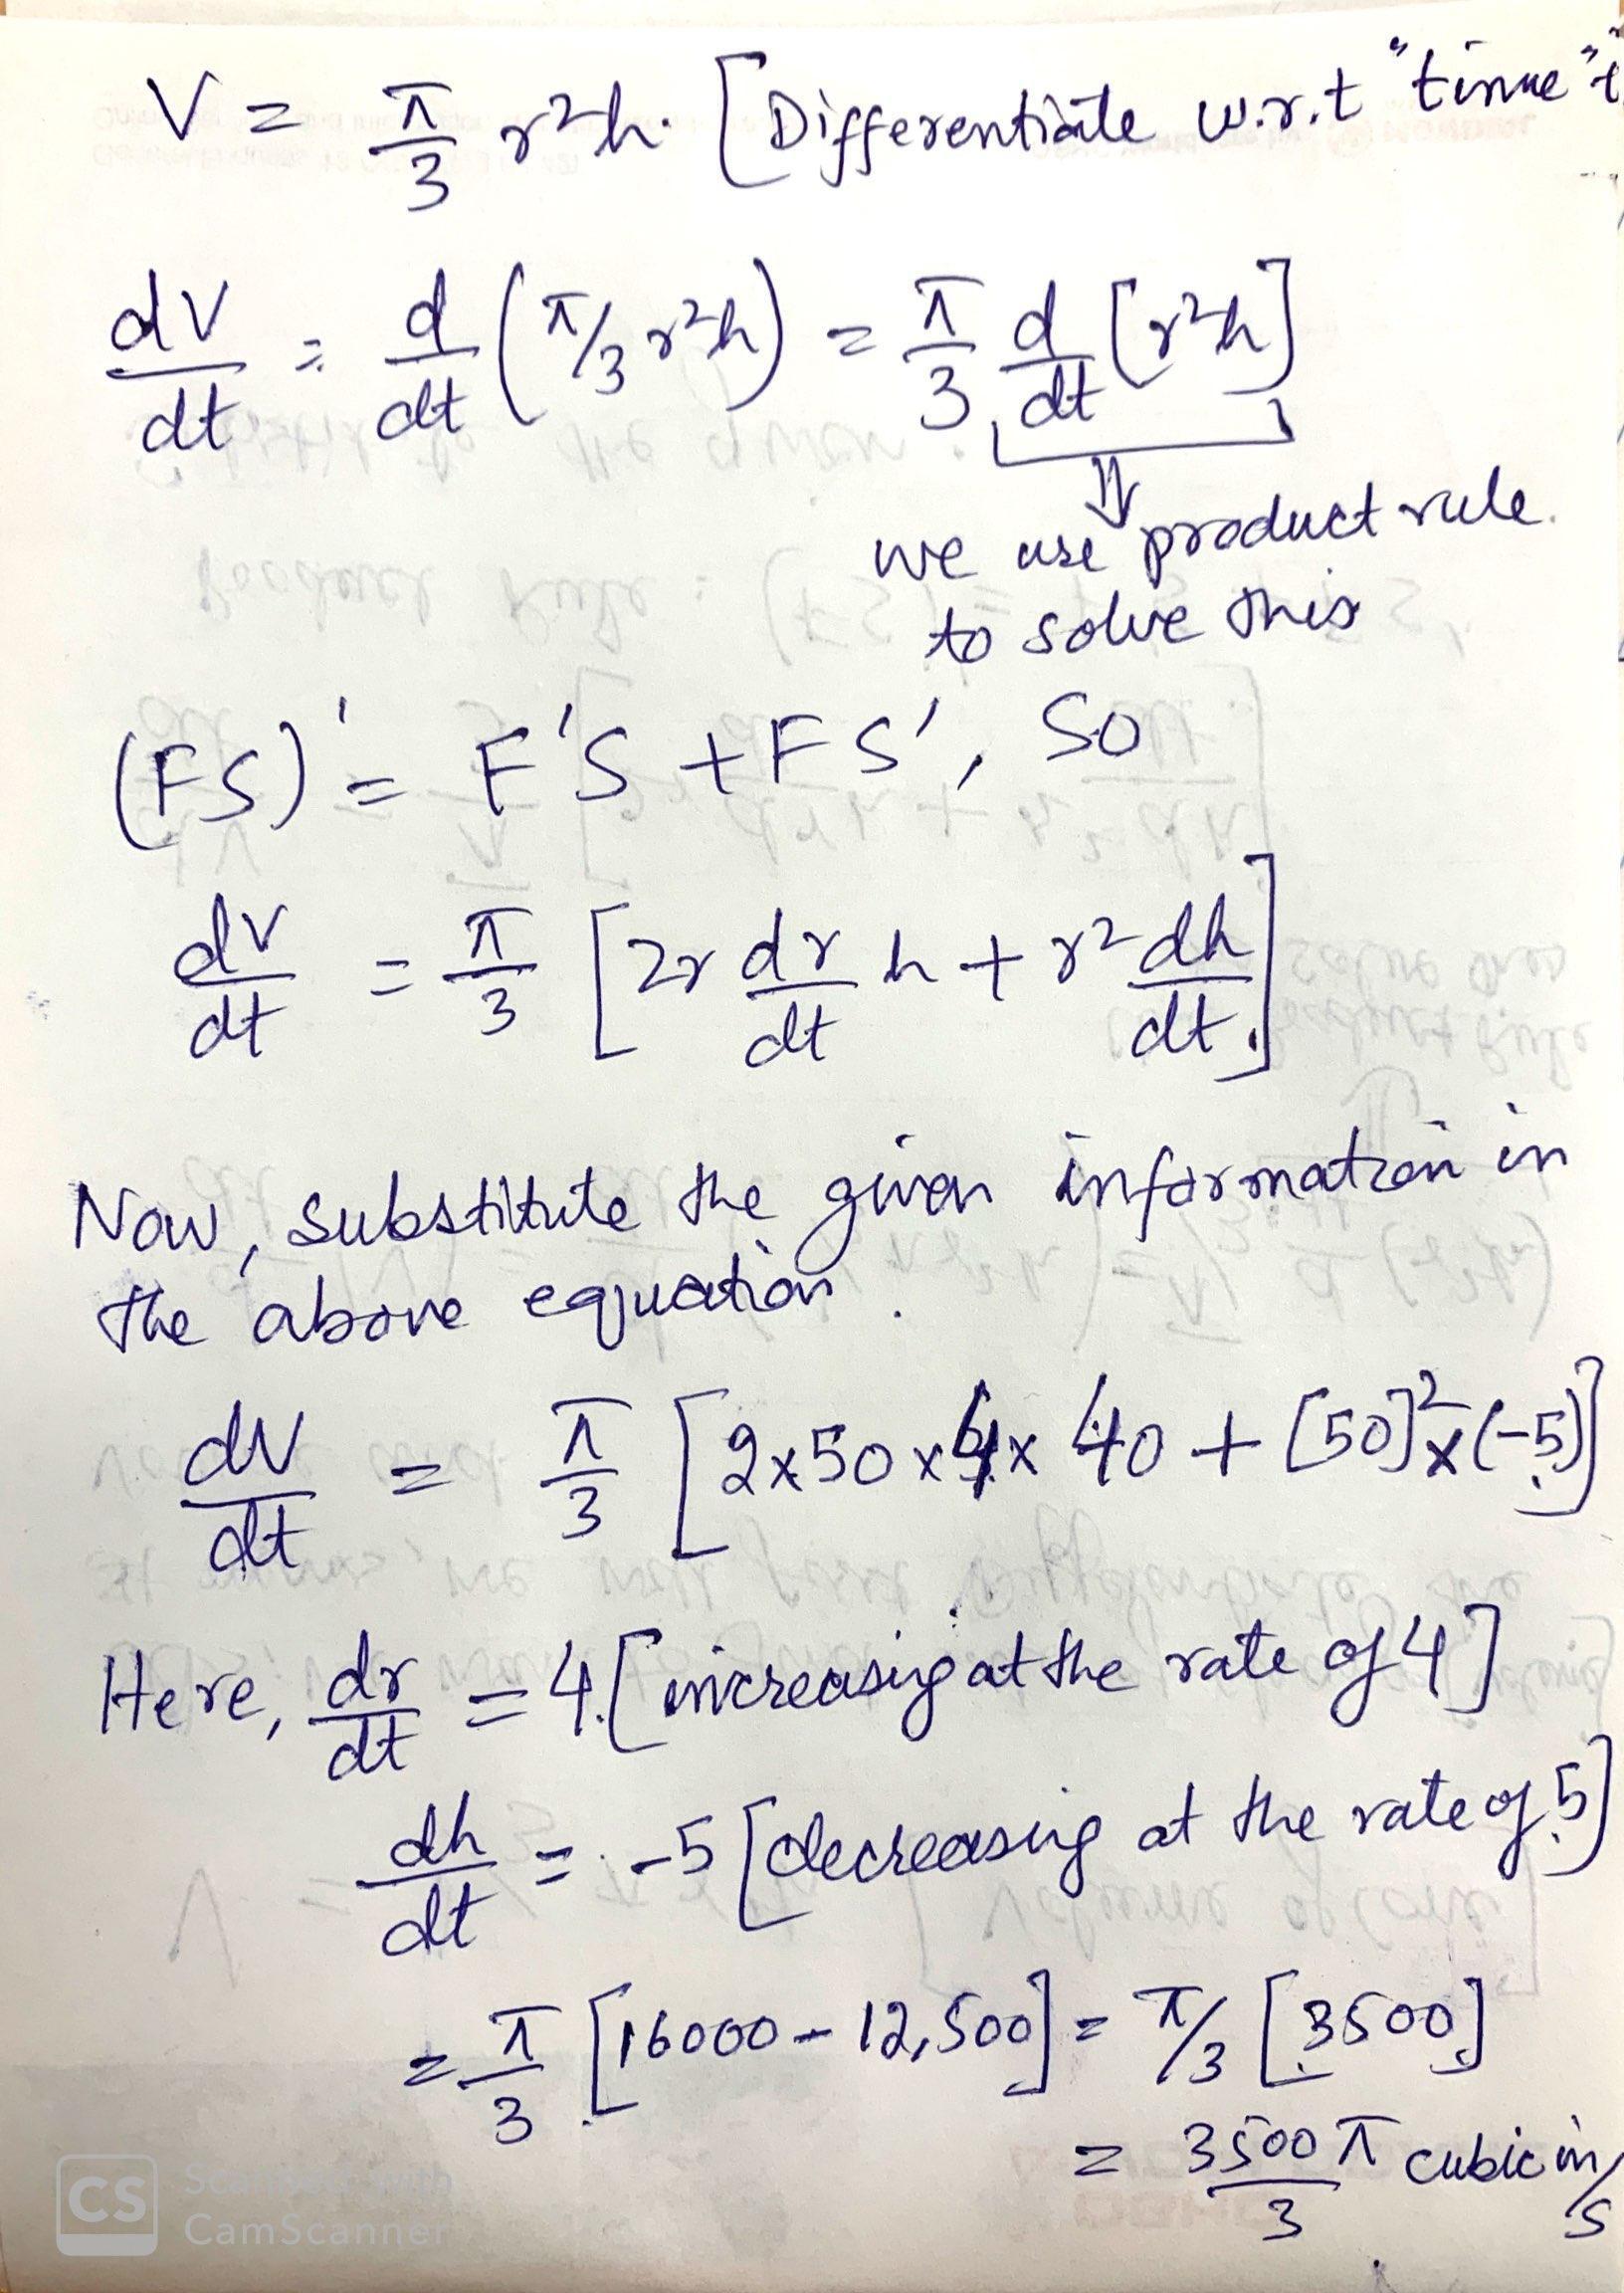 V = π/3 r²h. [Differentiate w.r.t "time" t
dV/dt = d/dt (π/3 r²h) = π/3 d/dt [r²h]
⇓
we use product rule.
to solve this
(FS)' = F'S + FS', So
dV/dt = π/3 [2r dr/dt h + r² dh/dt.]
Now, substitute the given information in
the above equation.
dV/dt = π/3 [2x50x4x 40 + [50]²x(-5)]
Here, dr/dt = 4. [increasing at the rate of 4]
dh/dt = -5 [decreasing at the rate of 5]
= π/3 [16000 - 12,500] = π/3 [3500]
= 3500π/3 cubic in/s
CS Scanned with
CamScanner